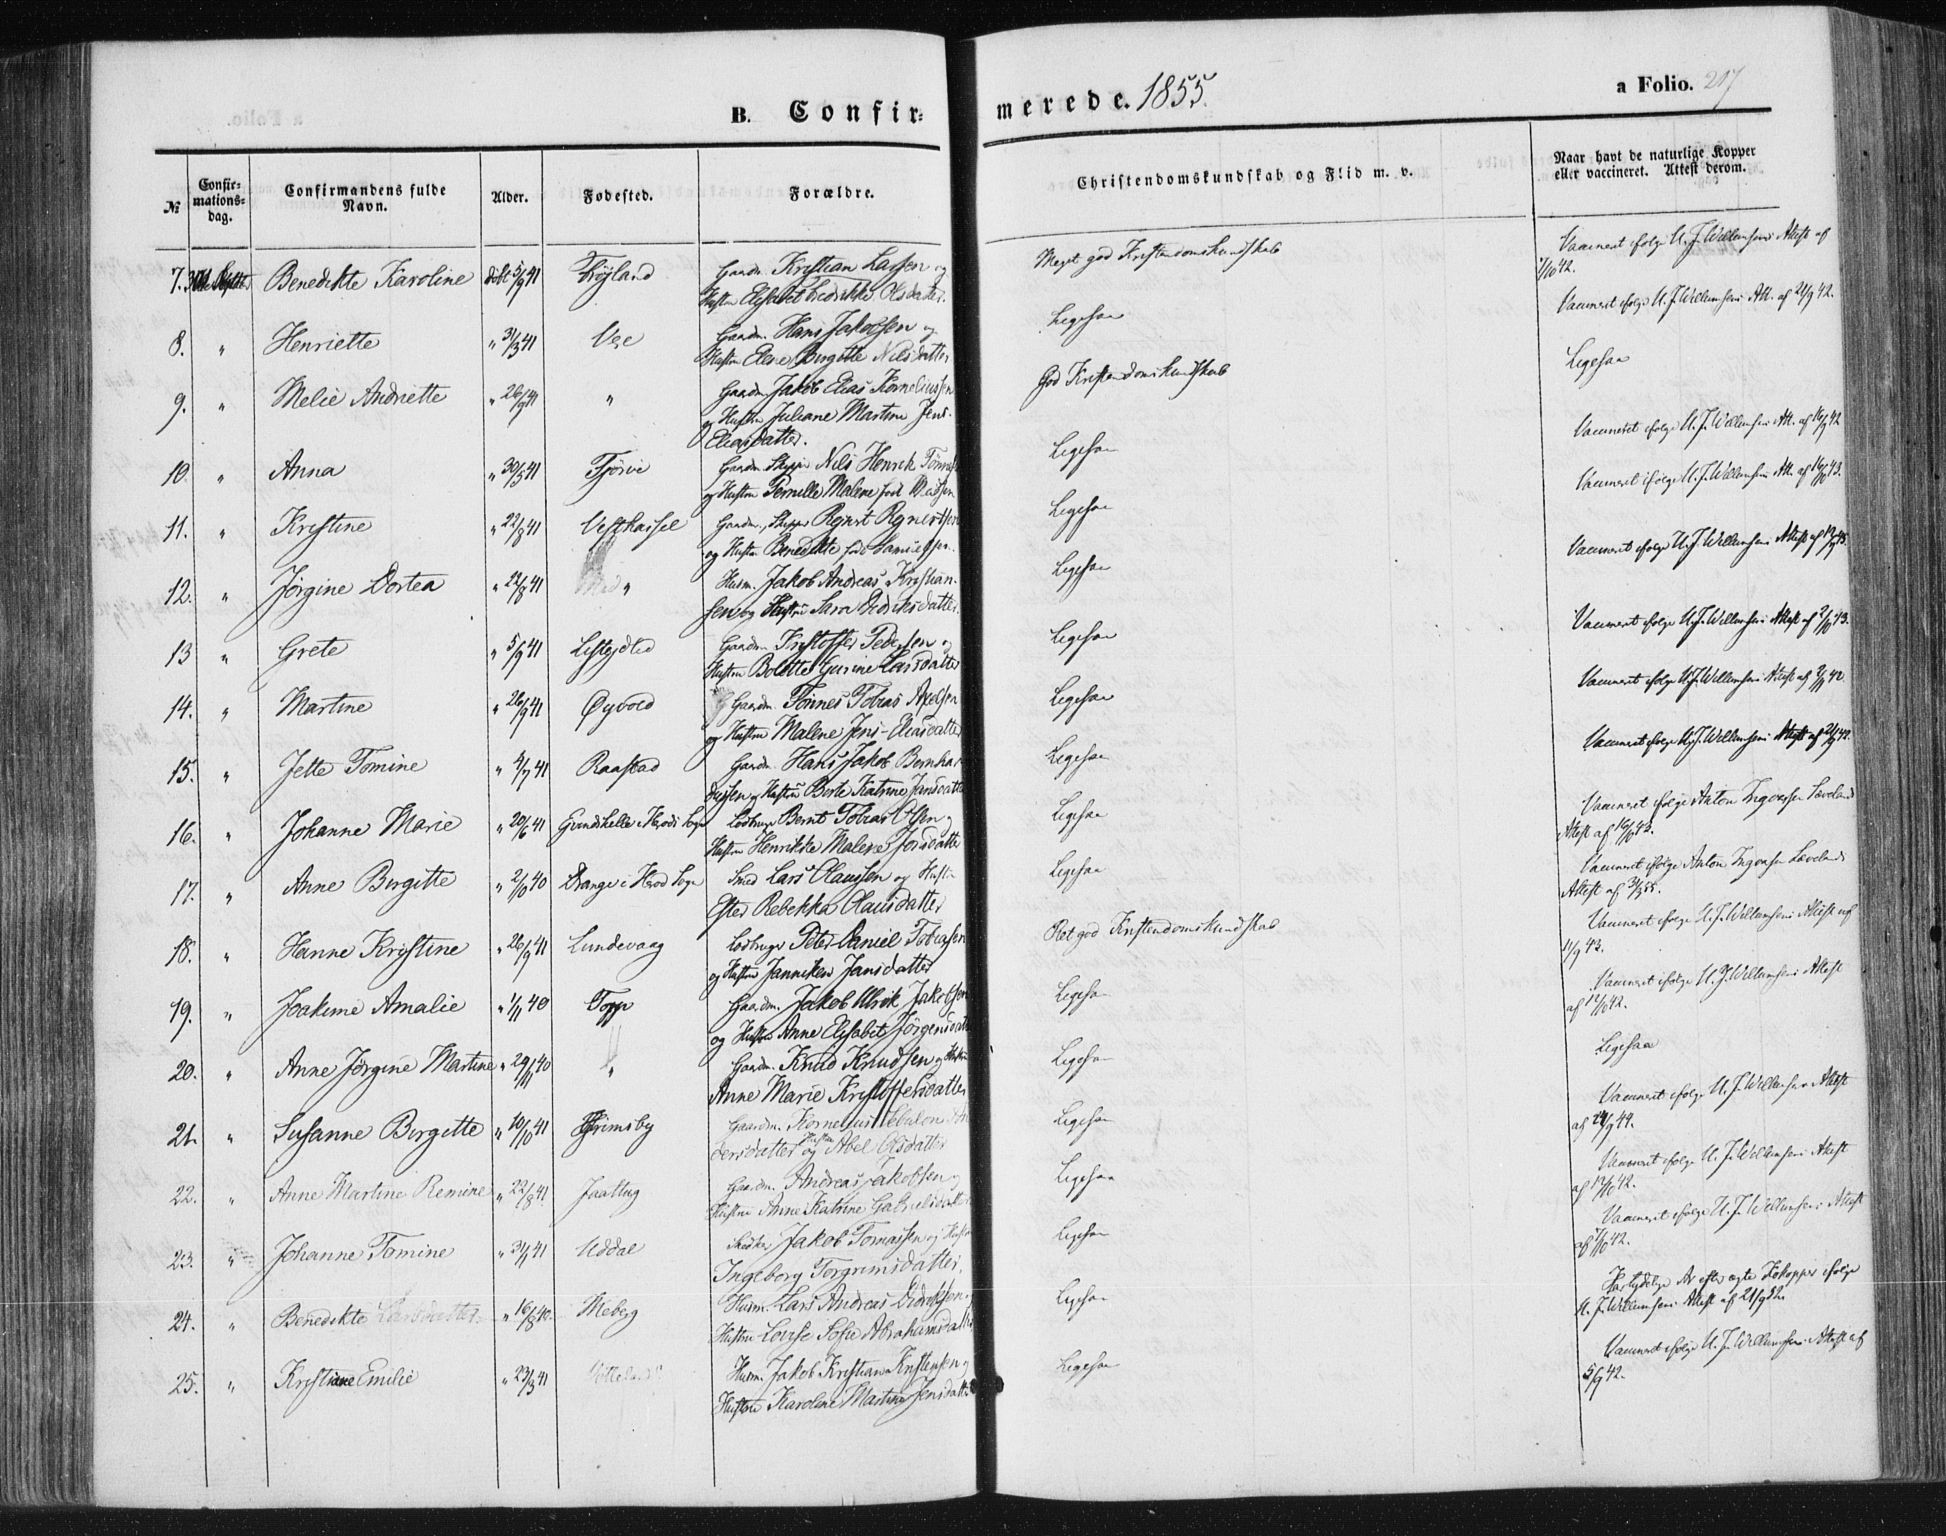 B. Confir-
merede. 1855.
a Folio. 217
№
Confir-
mations-
dag.
Confirmandens fulde
Navn.
Alder.
Fødested.
Forældre.
Christendomskundskab og Flid m. v.
Naar havt de naturlige Kopper
eller vaccineret. Attest derom.
7. Benedikte Karoline døbt 5/9 41 Gaardm. Kristian Lassen og
Hustru Elisabet Fredrikke Olsdatter
Meget god Kristendomskundskab
Vaccineret ifølge U. J. Willumsens Attest af
7/10 42.
8. " Henriette " 31/3 41 Vee Gaardm. Hans Jakobsen og
Hustru Elene Birgitte Nilsdatter
Ligesaa
Vaccineret ifølge U. J. Willumsens Att. af 21/9 42.
9. " Melie Andriette " 26/9 41 " Gaardm. Jakob Elias Korneliussen
og Hustru Juliane Martine Jens-
Eliasdatter.
God Kristendomskundskab
Ligesaa
10. " Anna " 30/5 41 Tjørve Gaardm. Skipper Nils Henrik
og Hustru Pernille Malene født Madsen
Ligesaa
Vaccineret ifølge U. J. Willumsens Att. af 16/9 42
11. " Kristine " 22/8 41 Vesthassel Gaardm. Skipper Regnert Regnertsen
og Hustru Benedikte født Samuelsen.
Ligesaa
Vaccineret ifølge U. J. Willumsens Att. af 16/10 43.
12. " Jørgine Dortea " 22/8 41 " Husm. Jakob Andreas Kristian-
sen og Hustru Sara Didriksdatter.
Ligesaa
Vaccineret ifølge U. J. Willumsens Attest af
13 " Grete " 5/9 41 Gaardm. Kristoffer Pedersen og
Hustru Bolette Gurine Larsdatter
Ligesaa
Vaccineret ifølge U. J. Willumsens Attest af 2/10 43.
14. " Martine " 26/9 41 Øyvold Gaardm. Tønnes Tobias Axelsen
og Hustru Malene Jens-Eliasdatter
Ligesaa
Vaccineret ifølge U. J. Willumsens Attest af
15. " Jette Tomine " 4/7 41 Raastad Gaardm. Hans Jakob Bernhar
dussen og Hustru Berte Katrine Jansdatter
Ligesaa
Vaccineret ifølge U. J. Willumsens Attest af 21/9 42.
16. " Johanne Marie " 20/6 41 i Herods Sogn Lodbruger Bernt Tobias Olsen og
Hustru Henrikke Malene Josdatter
Ligesaa
Vaccineret ifølge Anton Ingvorsen Loveland
Attest af 16/10 43.
17. " Anne Birgitte " 2/10 40 Drange i Herod Sogn Smed Lars Olaussen og Hustru
Ester Rebekka Olausdatter
Ligesaa
Vaccineret ifølge Anton Ingvorsen Lovelands
Attest af
18. " Hanne Kristine " 26/9 41 Lundevaag Lodbruger Peter Daniel Tobiasen
og Hustru Janniken Jansdatter
Ret god Kristendomskundskab
Vaccineret ifølge U. J. Willumsens Attest af
11/9 43.
19. " Joakime Amalie " 1/11 40 Topp Gaardm. Jakob Ulrik Jakobsen
og Hustru Anne Elisabet Jørgensdatter
Ligesaa
Vaccineret ifølge U. J. Willumsens Attest
af 12/10 42.
20. " Anne Jørgine Martine " 29/11 40 " Gaardm. Knud Knudsen og Hustru
Anne Marie Kristoffersdatter
Ligesaa
Ligesaa
21. " Susanne Birgitte " 10/10 41 Grimsby Gaardm. Kornelius Sebulon An
dersdatter og Hustru Abel Olsdatter
Ligesaa
Vaccineret ifølge U. J. Willumsens Attest
af
22. " Anne Martine Remine " 22/8 41 Jaattug Gaardm. Andreas Jakobsen og
Hustru Anne Katrine Gabrielsdatter
Ligesaa
Vaccineret ifølge U. J. Willumsens Attest
af 12/10 42.
23. " Johanne Tomine " 31/1 41 Uddal Jakob Tomassen og Hustru
Ingeborg Torgrimsdatter.
Ligesaa
Vaccineret ifølge U. J. Willumsens Attest
af 7/10 42.
24. " Benedikte Larsdatter " 16/8 40 Meberg Husm. Lars Andreas Didriksen og
Hustru Lovise Sofie Abrahamsdatter
Ligesaa
Har tydelige Ar efter ægte Kokopper ifølge
U. J. Willumsens Attest af
25. " Kristiane Emilie " 23/3 41 Husm. Jakob Kristian Kristensen og
Hustru Karoline Martine Jensdatter
Ligesaa
Vaccineret ifølge U. J. Willumsens Attest af
5/9 42.